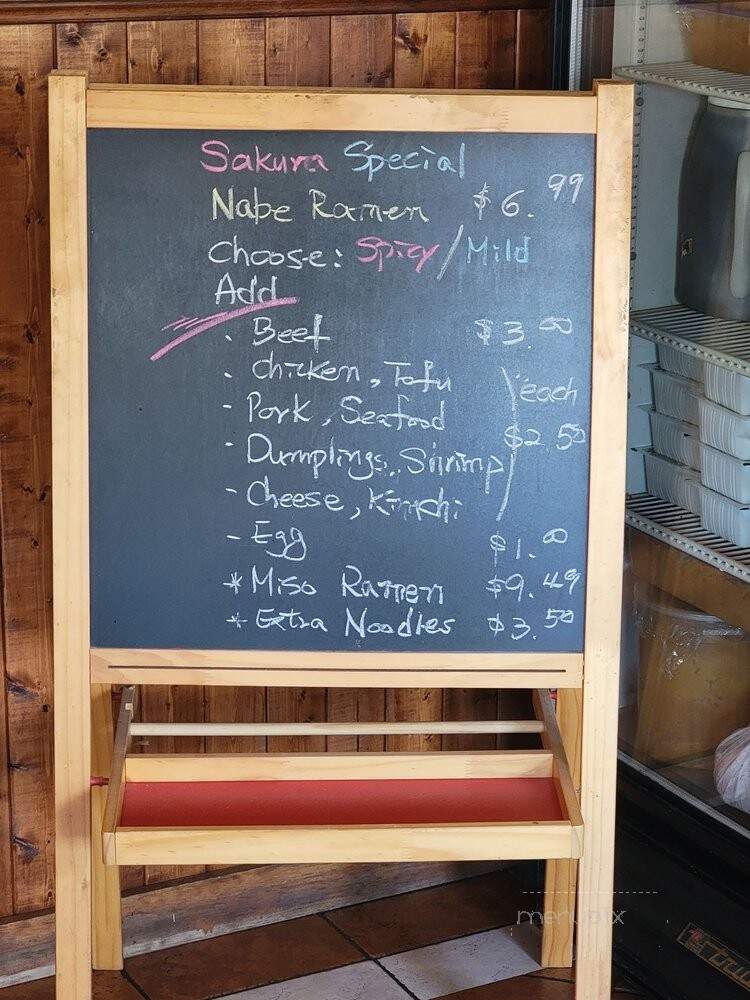 Sakura Special
Nabe Ramen $6.99
Choose: Spicy/Mild
Add
- Beef $3.00
- Chicken, Tofu
- Pork, Seafood
- Dumplings, Shrimp
- Cheese, Kimchi
each
$2.50
- Egg $1.00
* Miso Ramen $9.49
* Extra Noodles $3.50
menupix